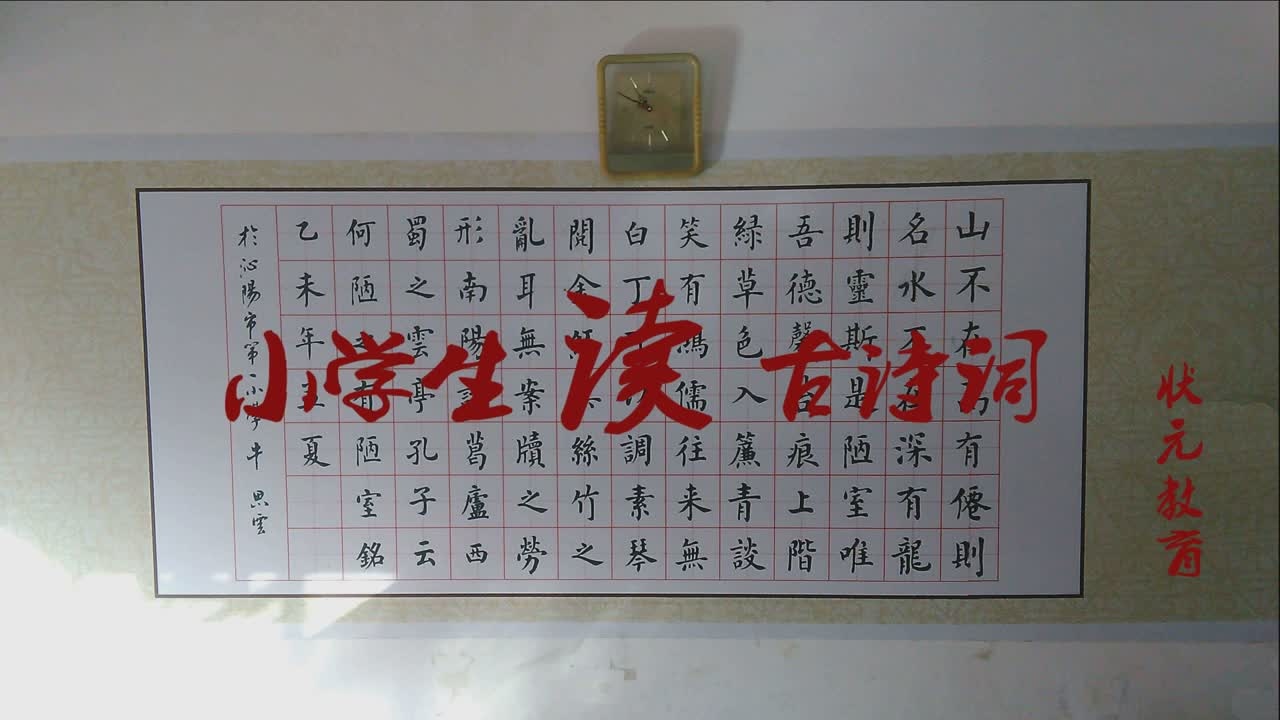 小学生读古诗词
状元教育
山不在高有僊則
名水不在深有龍
則靈斯是陋室唯
吾德馨苔痕上階
緑草色入簾青談
笑有鴻儒往来無
白丁可以調素琴
閲金經無絲竹之
亂耳無案牘之勞
形南陽諸葛廬西
蜀之雲亭孔子云
何陋之有陋室銘
乙未年夏
於沁陽市第一小學牛思雲